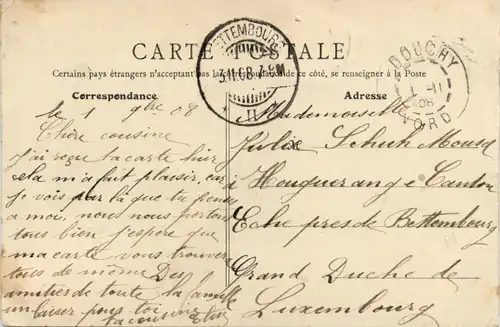 CARTE POSTALE
Certains pays étrangers n'acceptant pas la correspondance de ce côté, se renseigner à la Poste
Correspondance
Adresse
BETTEMBOURG
3.11.08
DOUCHY
1 -11
08
NORD
le 1 9bre 08
Chère cousine
j'ai reçue la carte hier
cela m'a fait plaisir, car
je vois par là que tu pense
a moi, nous nous portons
tous bien j'espère que
ma carte vous trouvera
tous de même Des
amitiés de toute la famille
un baiser pour toi
ta cousine
Mademoiselle
Julie Schuh
à
Canton
Esche pres de Bettembourg
Grand Duché de
Luxembourg